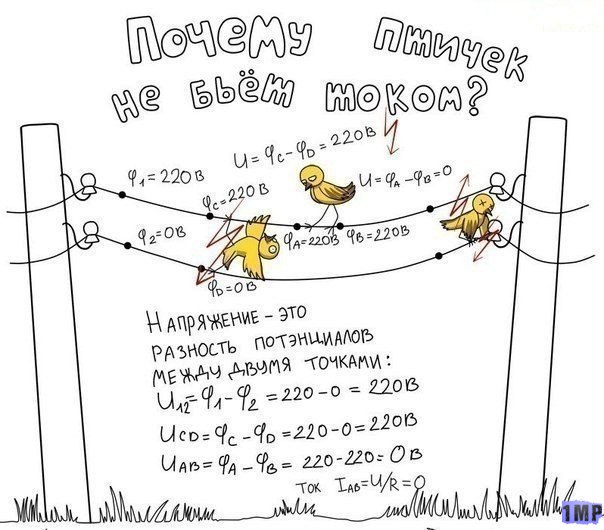 Почему птичек
не бьёт током?
U = φC - φD = 220 В
φ1 = 220 В
φC = 220 В
U = φA - φB = 0
φ2 = 0В
φA = 220В
φB = 220В
φD = 0 В
Напряжение - это
разность потэнциалов
между двумя точками:
U12 = φ1 - φ2 = 220 - 0 = 220В
UCD = φC - φD = 220 - 0 = 220В
UAB = φA - φB = 220 - 220 = 0В
ток IAB = U/R = 0
1МР